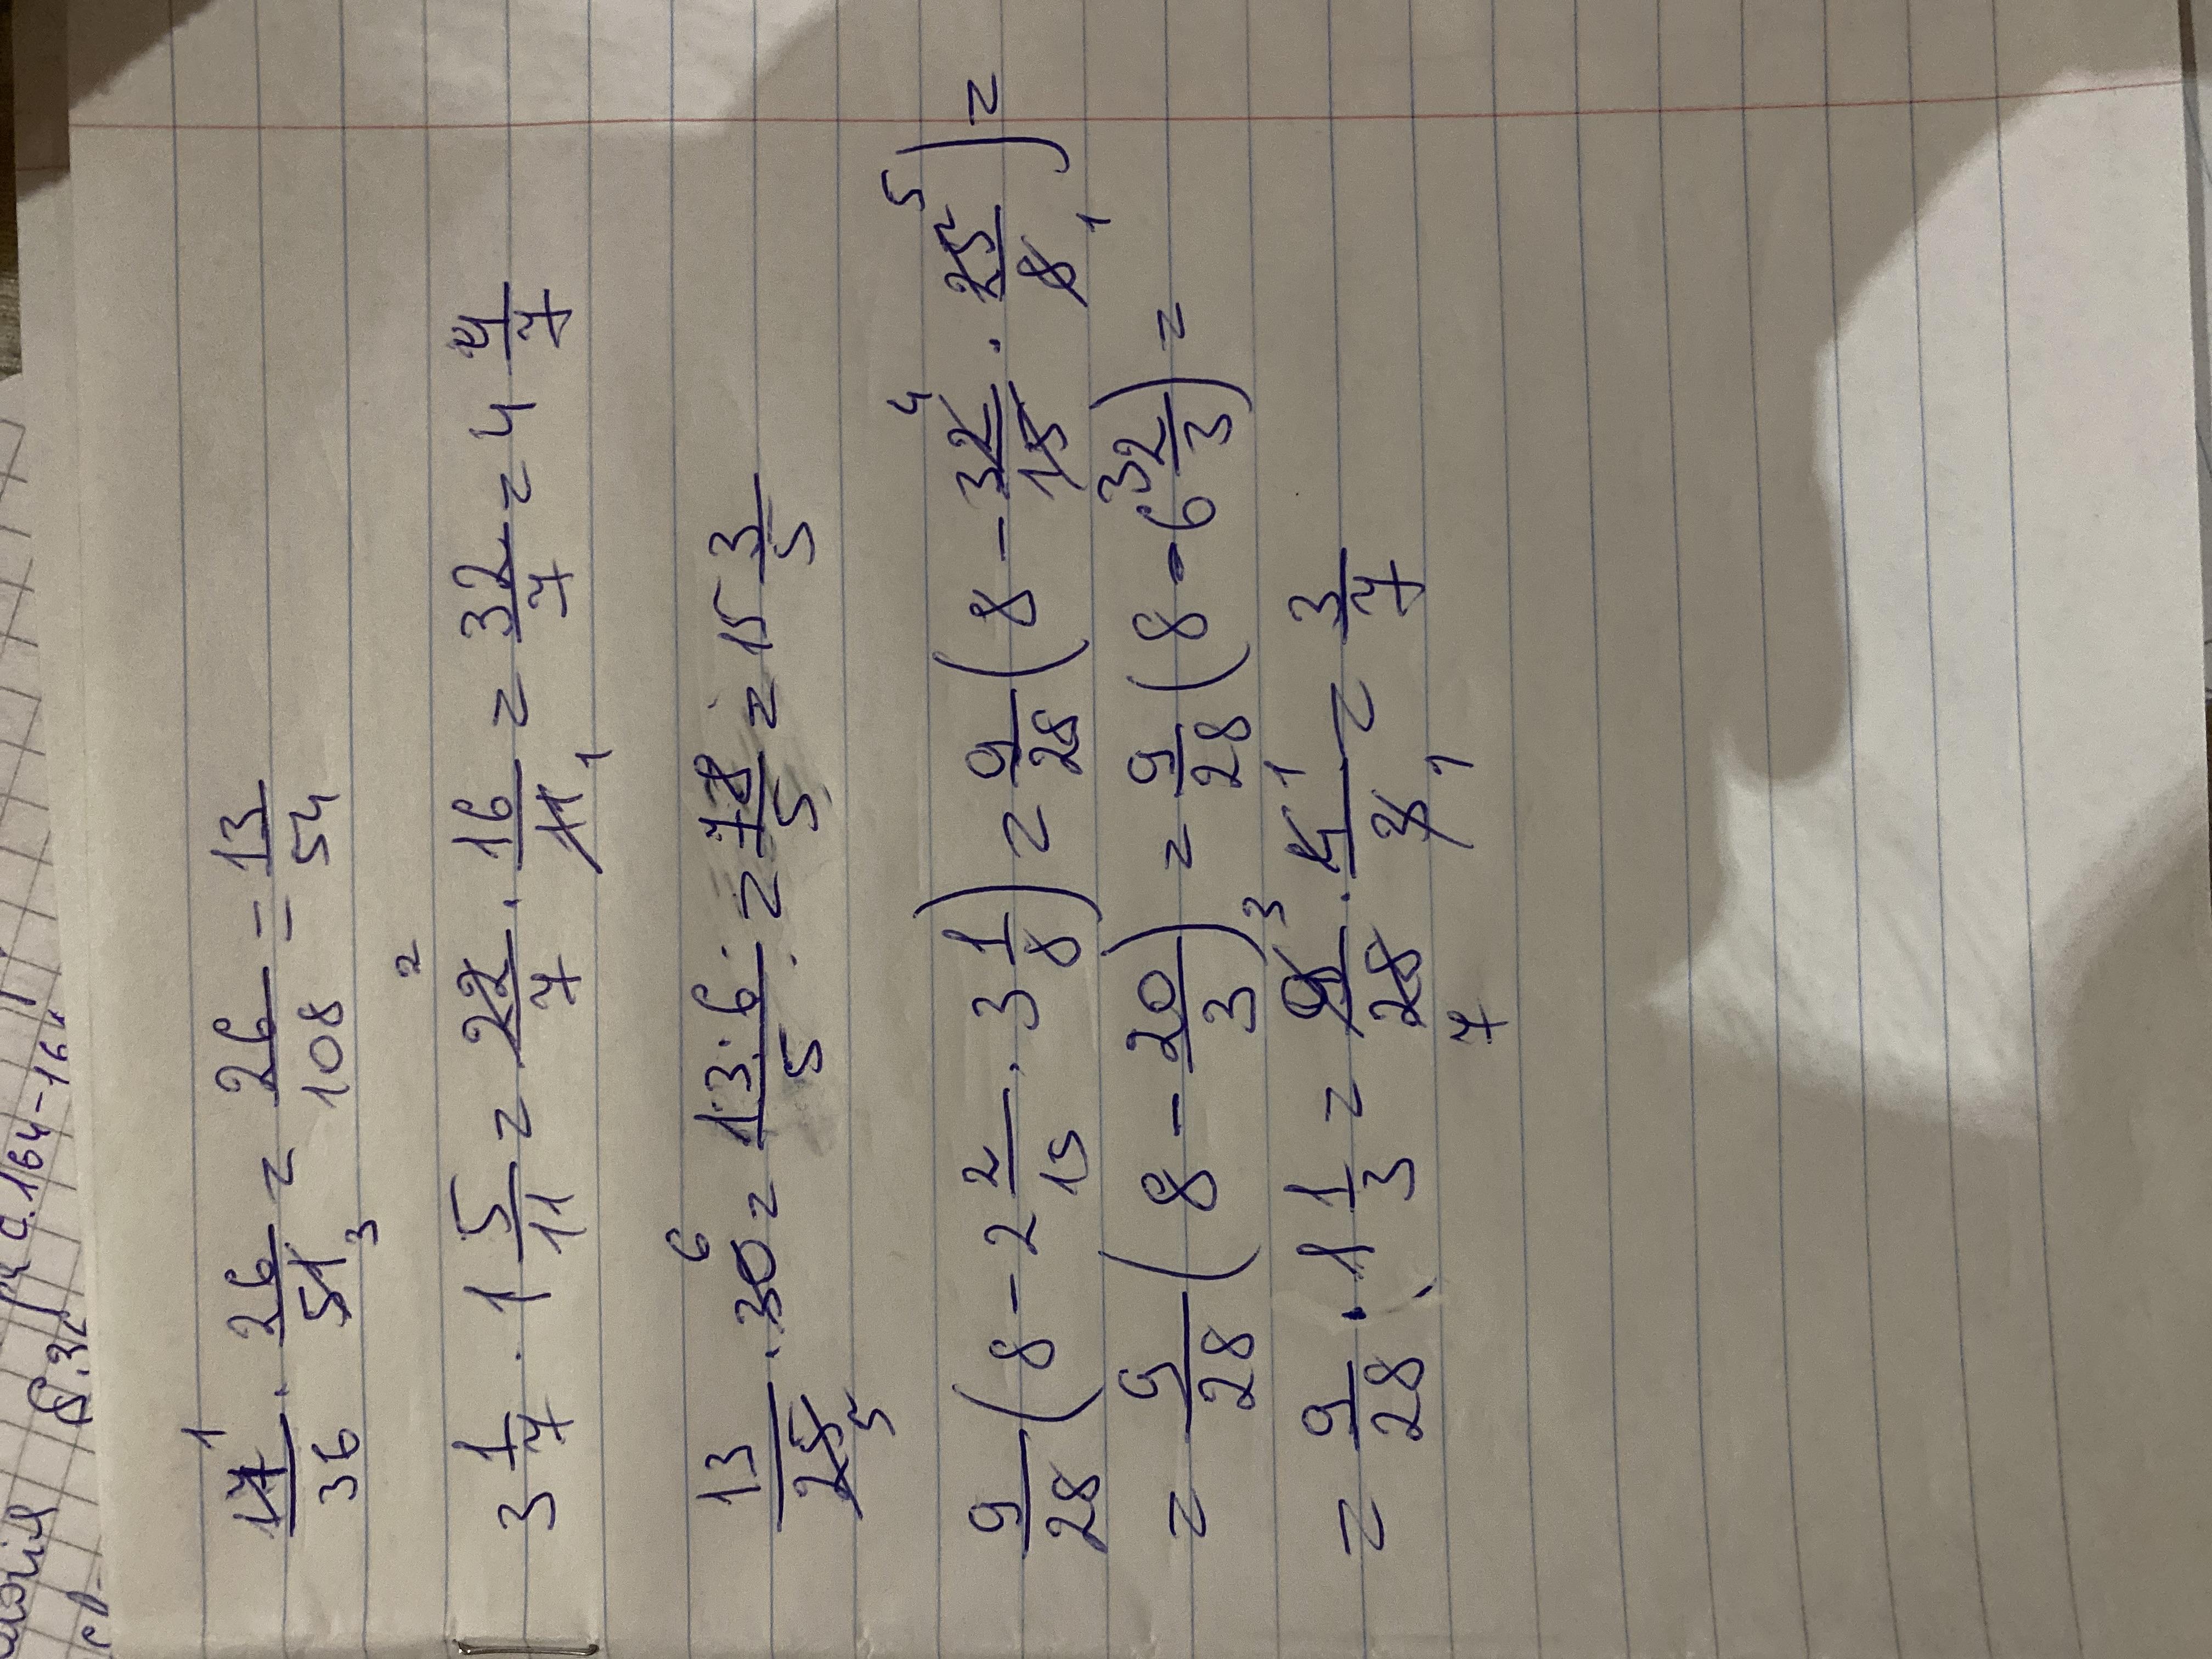 с. 164-16
17/36 · 26/51 = 26/108 = 13/54
3 1/7 · 1 5/11 = 22/7 · 16/11 = 32/7 = 4 4/7
13/25 · 30 = 13·6/5 = 78/5 = 15 3/5
9/28 (8 - 2 2/15 · 3 1/8) = 9/28 (8 - 32/15 · 25/8) =
= 9/28 (8 - 20/3) = 9/28 (8 - 6 2/3) =
= 9/28 · 1 1/3 = 9/28 · 4/3 = 3/7